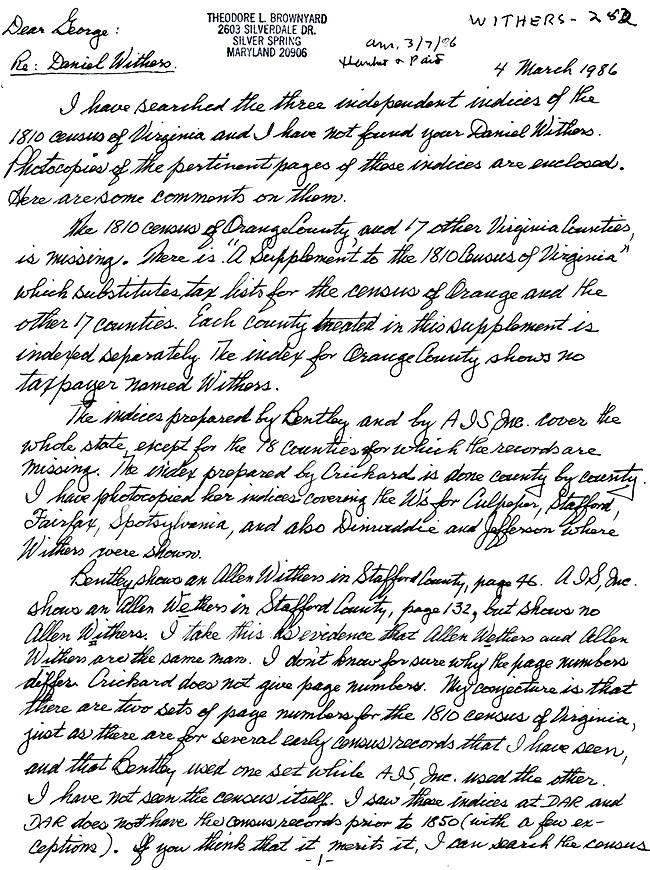 THEODORE L. BROWNYARD
2603 SILVERDALE DR.
SILVER SPRING
MARYLAND 20906
WITHERS - 282
Dear George:
Re: Daniel Withers.
ans. 3/7/86
4 March 1986
I have searched the three independent indices of the
1810 census of Virginia and I have not found your Daniel Withers.
Photocopies of the pertinent pages of these indices are enclosed.
Here are some comments on them.
The 1810 census of Orange County, and 17 other Virginia Counties,
is missing. There is "A Supplement to the 1810 Census of Virginia"
which substitutes tax lists for the census of Orange and the
other 17 counties. Each county treated in this supplement is
indexed separately. The index for Orange County shows no
taxpayer named Withers.
The indices prepared by Bentley and by AIS, Inc. cover the
whole state, except for the 18 Counties for which the records are
missing. The index prepared by Crickard is done county by county.
I have photocopied her indices covering the W's for Culpeper, Stafford,
Fairfax, Spotsylvania, and also Dinwiddie and Jefferson where
Withers were shown.
Bentley shows an Allen Withers in Stafford County, page 46. AIS, Inc.
shows an Allen Wethers in Stafford County, page 132, but shows no
Allen Withers. I take this as evidence that Allen Wethers and Allen
Withers are the same man. I don't know for sure why the page numbers
differ. Crickard does not give page numbers. My conjecture is that
there are two sets of page numbers for the 1810 census of Virginia,
just as there are for several early census records that I have seen,
and that Bentley used one set while AIS, Inc. used the other.
I have not seen the census itself. I saw these indices at DAR and
DAR does not have the census records prior to 1850 (with a few ex-
ceptions). If you think that it merits it, I can search the census
-1-